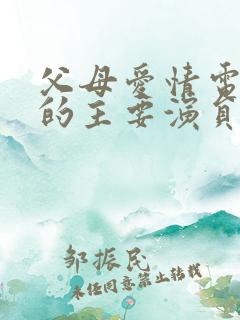 父母愛情電
的主要演員
邹振民
未经同意禁止转载